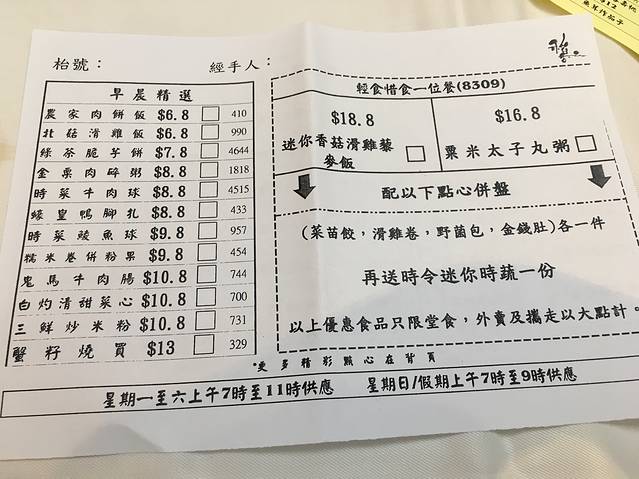 枱號：
經手人：
早晨精選
農家肉餅飯 $6.8 410
北菇滑雞飯 $6.8 990
綠茶脆芋餅 $7.8 4644
金栗肉碎粥 $8.8 1818
時菜牛肉球 $8.8 4515
蠔皇鴨腳扎 $8.8 433
時菜鯪魚球 $9.8 957
糯米卷併粉果 $9.8 454
鬼馬牛肉腸 $10.8 744
白灼清甜菜心 $10.8 700
三鮮炒米粉 $10.8 731
蟹籽燒買 $13 329
輕食惜食一位餐(8309)
$18.8
迷你香菇滑雞藜
麥飯
$16.8
粟米太子丸粥
配以下點心併盤
(菜苗餃，滑雞卷，野菌包，金錢肚)各一件
再送時令迷你時蔬一份
以上優惠食品只限堂食，外賣及攜走以大點計。
*更多精彩點心在背頁
星期一至六上午7時至11時供應 星期日/假期上午7時至9時供應